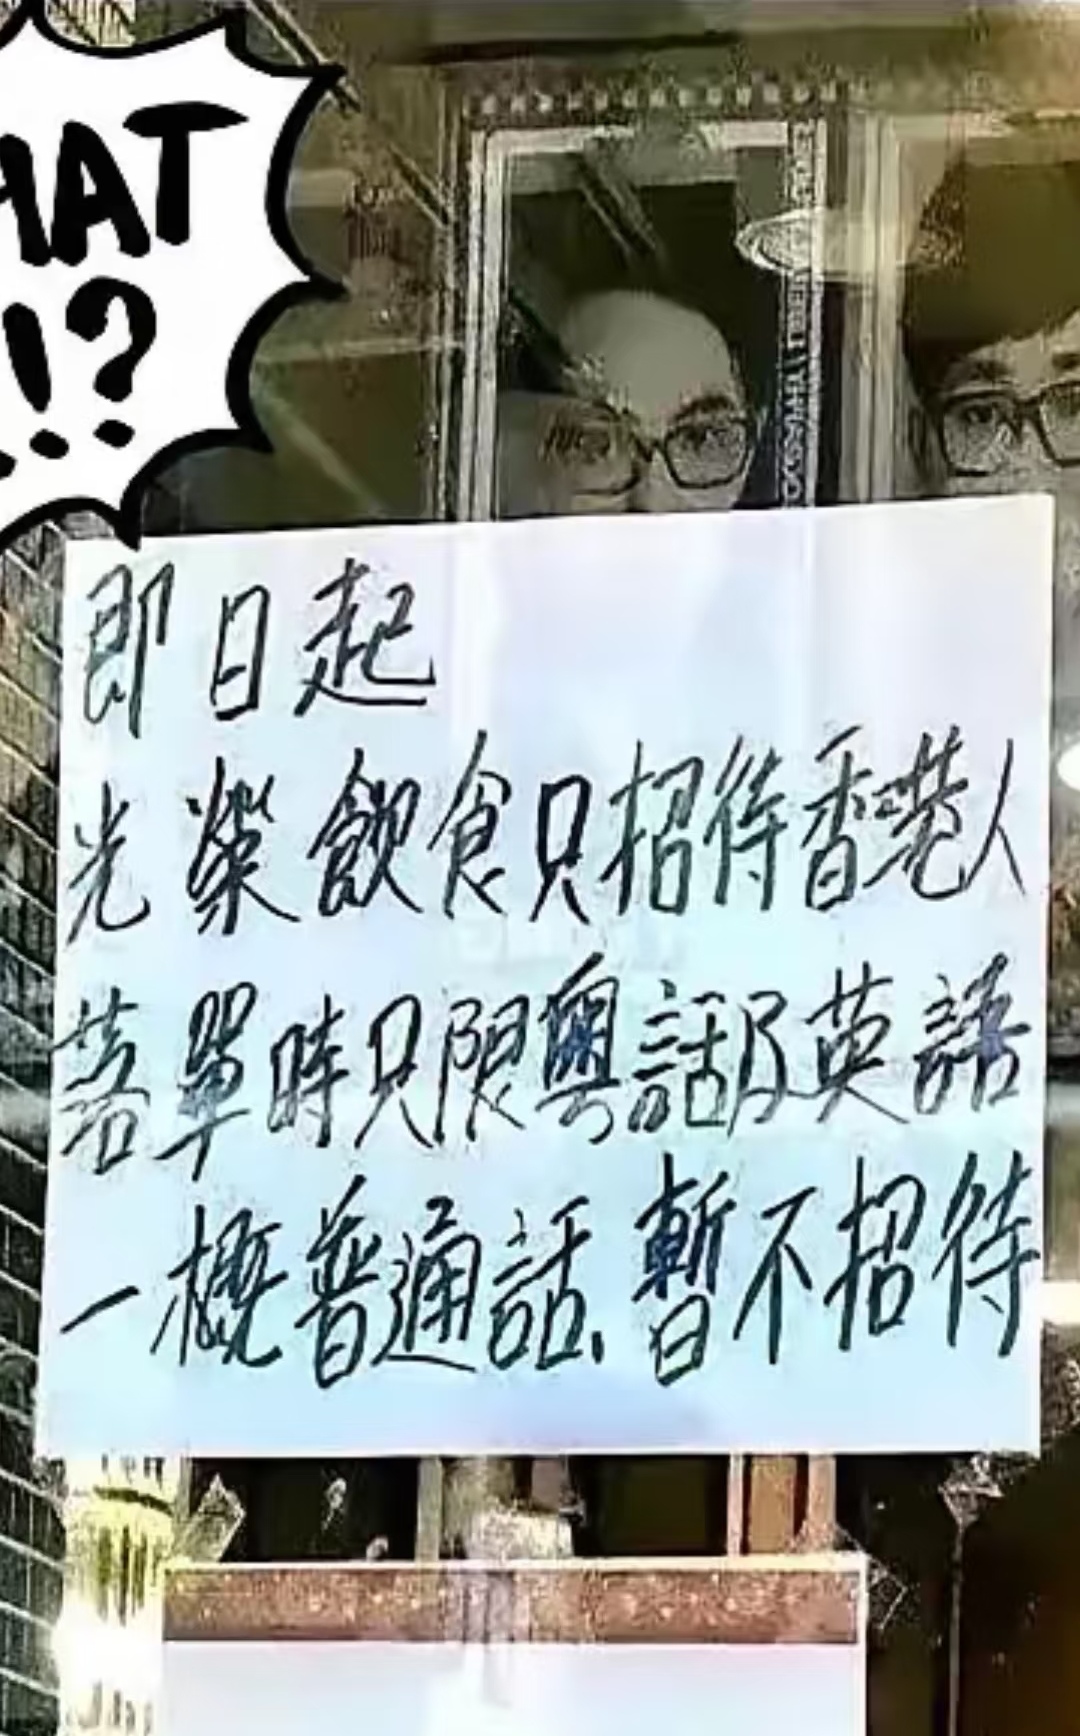 HAT
!?
即日起
光榮飲食只招待香港人
落單時只限粵話及英語
一概普通話、暫不招待